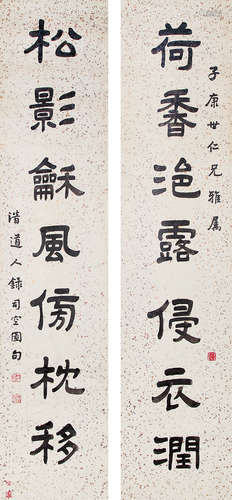 子康世仁兄雅属
荷香浥露侵衣潤
松影龢風傍枕移
潜道人錄司空圖句